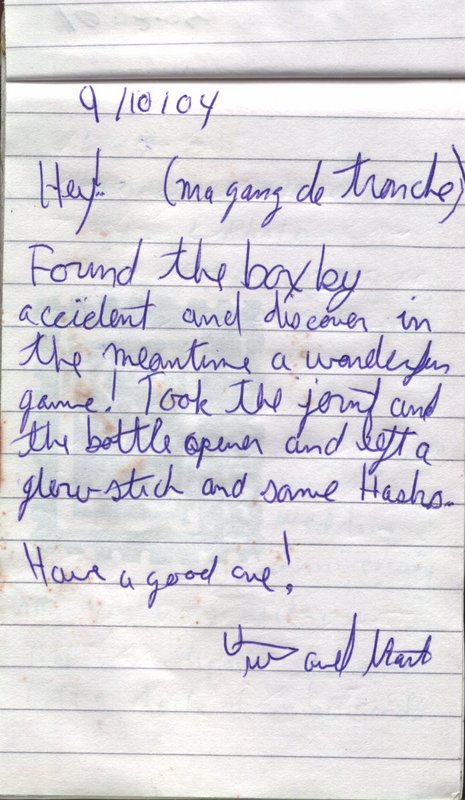 9/10/04
Hey! (ma gang de tronche)
Found the box by
accident and discover in
the meantime a wonderful
game! Took the joint and
the bottle opener and left a
glow-stick and some Hasks.
Have a good one!
and Mart